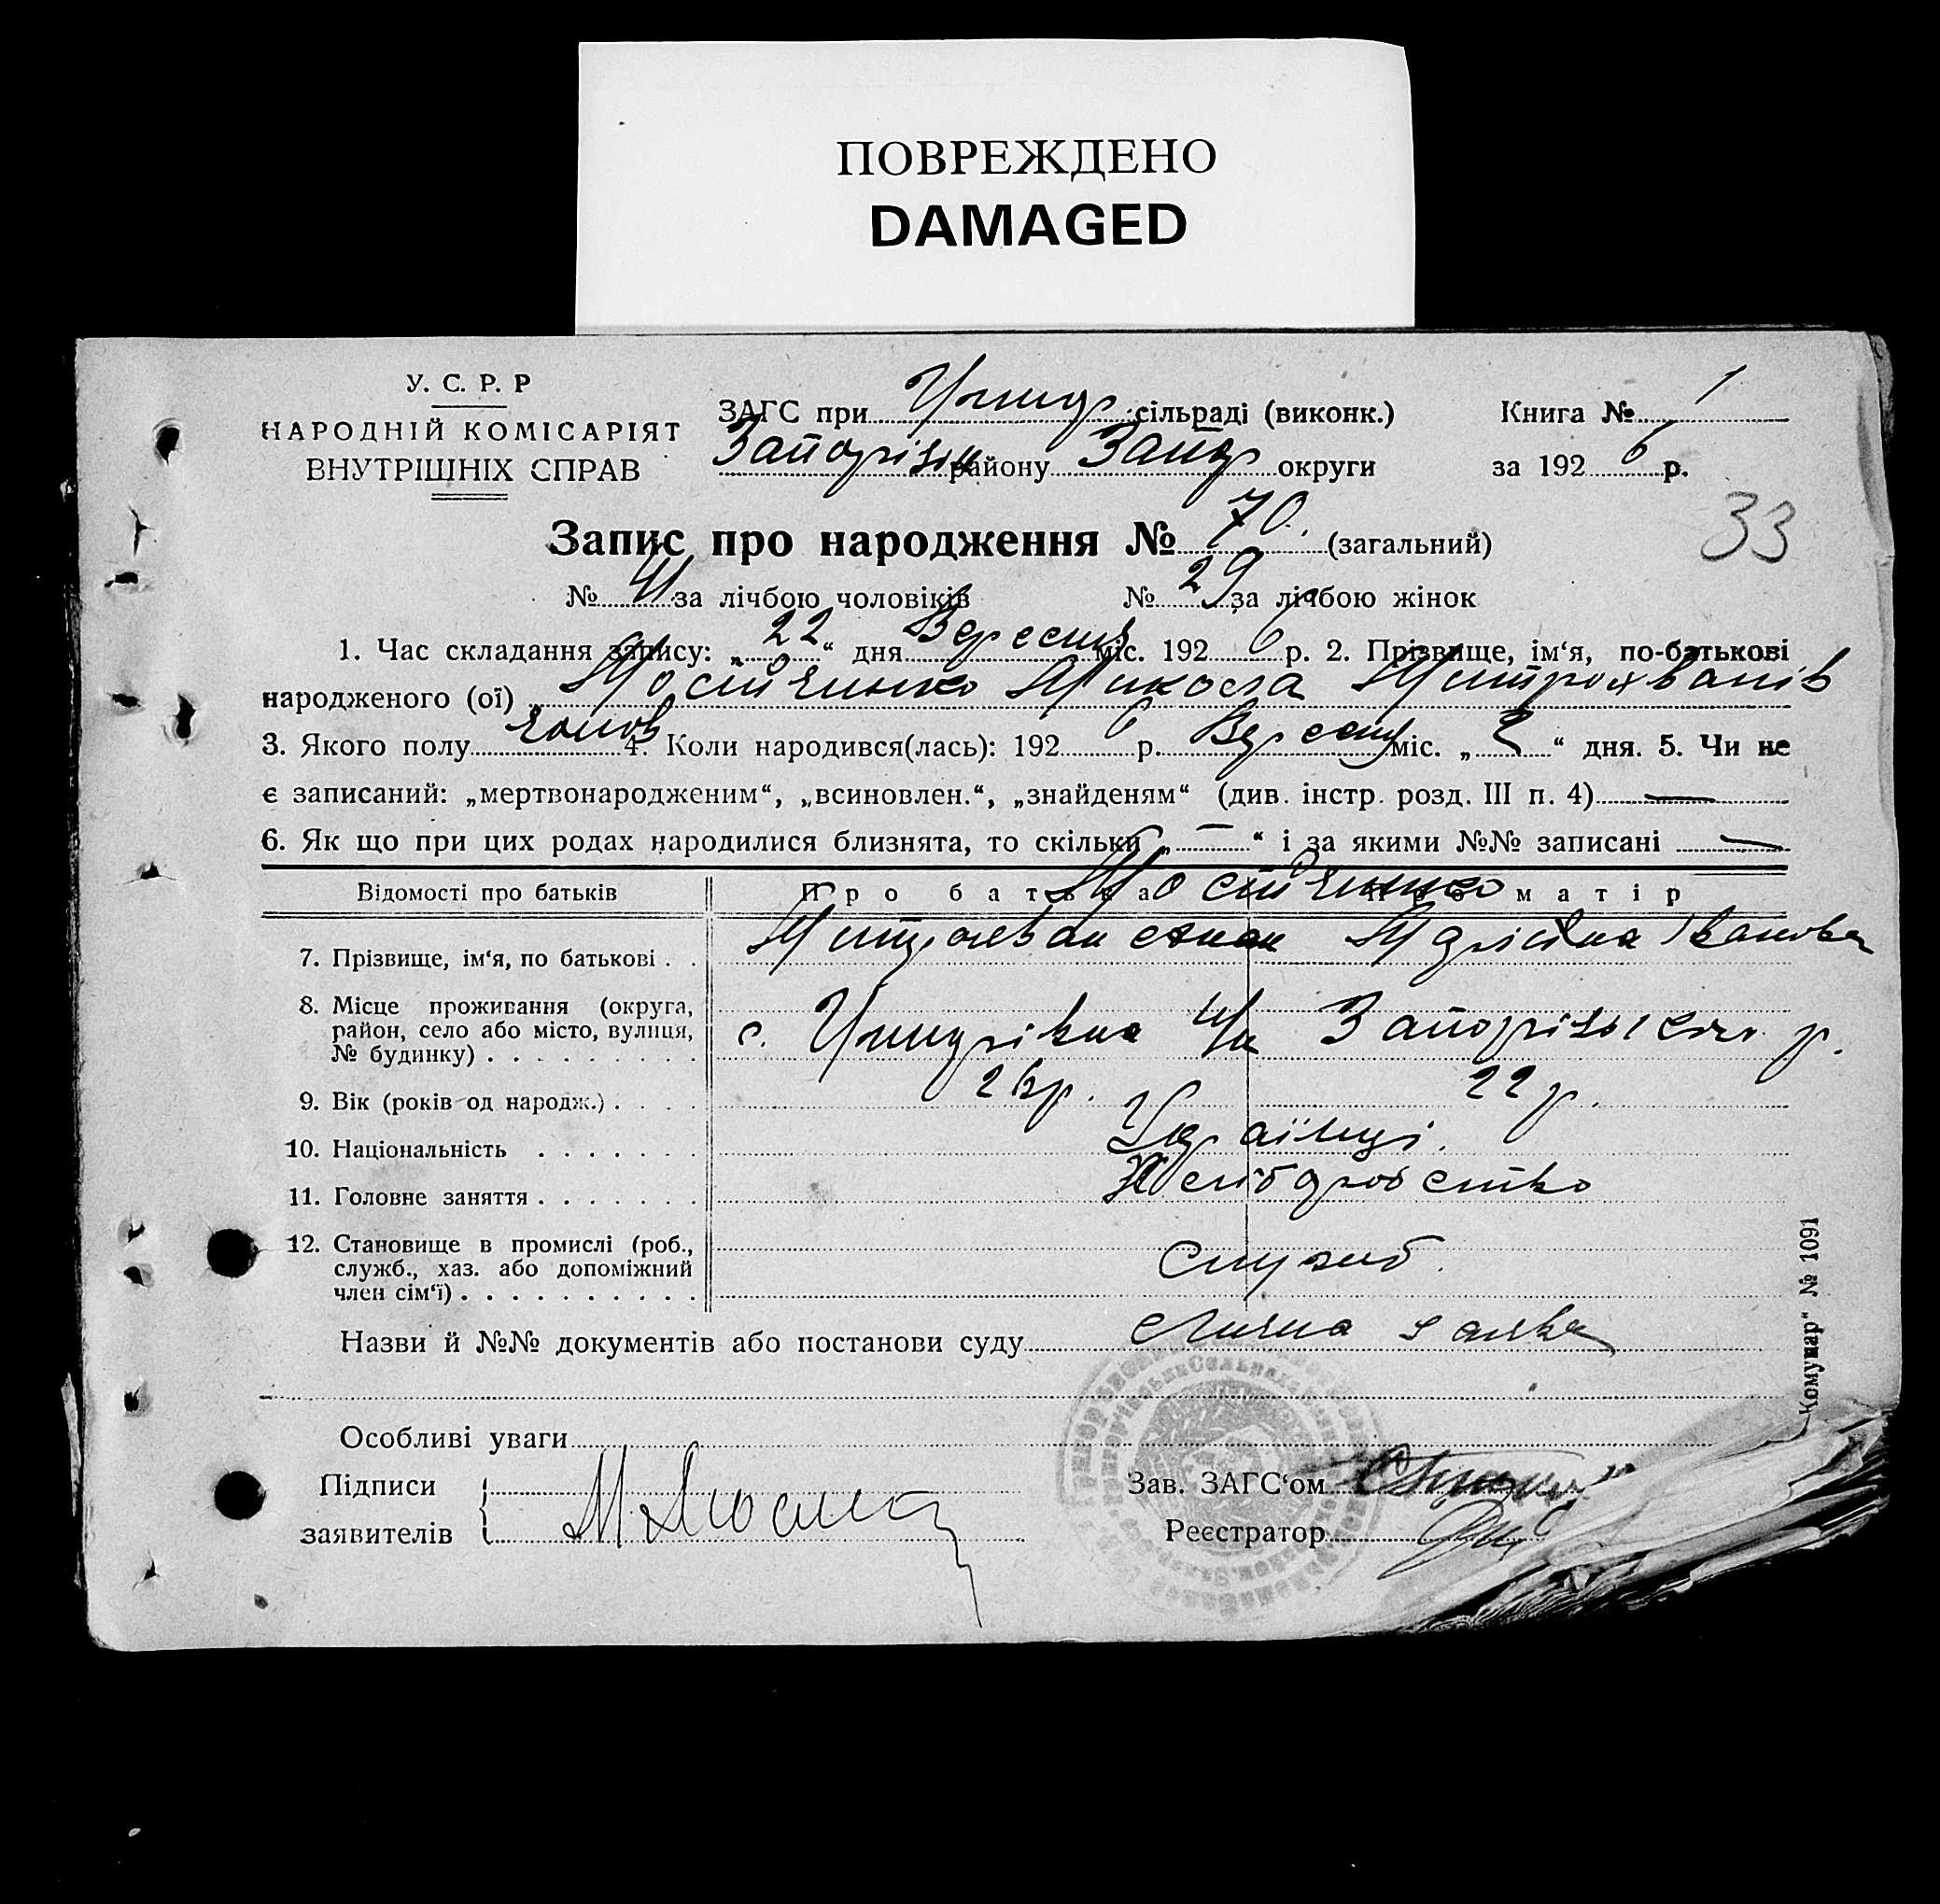 ПОВРЕЖДЕНО
DAMAGED
У. С. Р. Р
НАРОДНІЙ КОМІСАРІЯТ
ВНУТРІШНІХ СПРАВ
ЗАГС при сільраді (виконк.)
Запорізьк району Запор округи
Книга № 1
за 1926 р.
33
Запис про народження № 70. (загальний)
№ 41 за лічбою чоловіків № 29 за лічбою жінок
1. Час складання запису: „22“ дня Вересня міс. 1926 р. 2. Прізвище, ім‘я, по-батькові
народженого (ої) Микола Митрохванів
3. Якого полу чолов 4. Коли народився(лась): 1926 р. Вересня міс. „2“ дня. 5. Чи не
є записаний: „мертвонародженим“, „всиновлен.“, „знайденям“ (див. інстр. розд. III п. 4) —
6. Як що при цих родах народилися близнята, то скільки „—“ і за якими №№ записані —
Відомості про батьків Про батька Про матір
7. Прізвище, ім‘я, по батькові . . Іванова
8. Місце проживання (округа, район, село або місто, вулиця, № будинку) . . . . . . . . . с. Запорізького р.
9. Вік (років од народж.) . . . . 26 р. 22 р.
10. Національність . . . . . . . Українці.
11. Головне заняття . . . . . . . Хліборобство
12. Становище в промислі (роб., служб., хаз. або допоміжний член сім‘ї) . . . . . . . . . .
Назви й №№ документів або постанови суду заява
Особливі уваги
Підписи
заявителів
Зав. ЗАГС‘ом
Реєстратор
Комунар“ № 1091